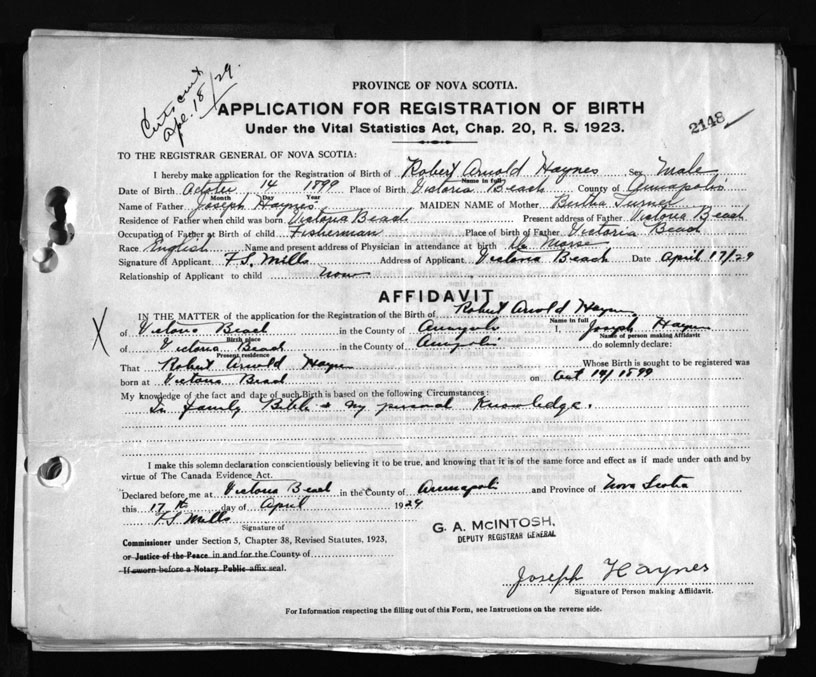 Cert sent
Apl. 18/29.
PROVINCE OF NOVA SCOTIA.
APPLICATION FOR REGISTRATION OF BIRTH
Under the Vital Statistics Act, Chap. 20, R. S. 1923.
2148
TO THE REGISTRAR GENERAL OF NOVA SCOTIA:
I hereby make application for the Registration of Birth of Robert Arnold Haynes Sex Male
Name in full
Date of Birth October 14 1899 Place of Birth Victoria Beach County of Annapolis
Month Day Year
Name of Father Joseph Haynes MAIDEN NAME of Mother Bertha Turner
Residence of Father when child was born Victoria Beach Present address of Father Victoria Beach
Occupation of Father at Birth of child Fisherman Place of birth of Father Victoria Beach
Race English Name and present address of Physician in attendance at birth Morse
Signature of Applicant F.S. Mills Address of Applicant Victoria Beach Date April 17/29
Relationship of Applicant to child None
AFFIDAVIT
IN THE MATTER of the application for the Registration of the Birth of Robert Arnold Haynes
Name in full
X of Victoria Beach in the County of Annapolis I, Joseph Haynes
Birth place Name of person making Affidavit
of Victoria Beach in the County of Annapolis do solemnly declare:
Present residence
That Robert Arnold Haynes Whose Birth is sought to be registered was
born at Victoria Beach on Oct 14/1899
My knowledge of the fact and date of such Birth is based on the following Circumstances:
In family Bible & my personal Knowledge.
I make this solemn declaration conscientiously believing it to be true, and knowing that it is of the same force and effect as if made under oath and by
virtue of The Canada Evidence Act.
Declared before me at Victoria Beach in the County of Annapolis and Province of Nova Scotia
this 17th day of April 1929
F.S. Mills
Signature of
G. A. McINTOSH,
DEPUTY REGISTRAR GENERAL
Commissioner under Section 5, Chapter 38, Revised Statutes, 1923,
or Justice of the Peace in and for the County of
If sworn before a Notary Public affix seal.
Joseph Haynes
Signature of Person making Affidavit.
For Information respecting the filling out of this Form, see Instructions on the reverse side.